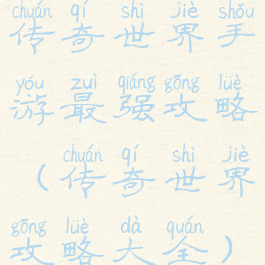 chuán qí shì jiè shǒu
传奇世界手
yóu zuì qiáng gōng lüè
游最强攻略
chuán qí shì jiè
（传奇世界
gōng lüè dà quán
攻略大全）